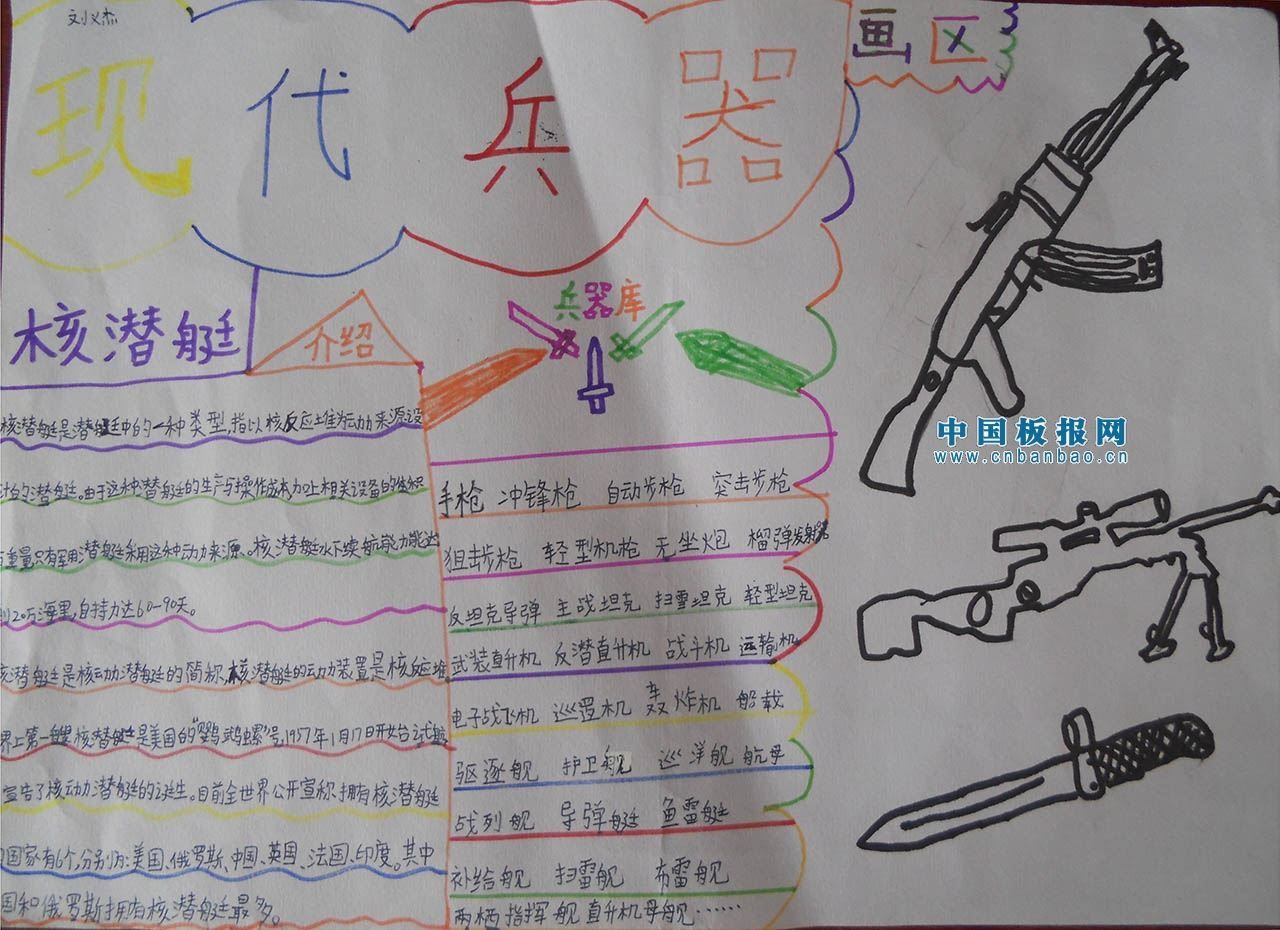 刘义杰
现代兵器
画区
核潜艇
介绍
核潜艇是潜艇中的一种类型,指以核反应堆为动力来源设
计的潜艇。由于这种潜艇的生产与操作成本,加上相关设备的体积
与重量,只有军用潜艇采用这种动力来源。核潜艇水下续航能力能达
到20万海里,自持力达60-90天。
核潜艇是核动力潜艇的简称,核潜艇的动力装置是核反应堆
界上第一艘核潜艇是美国的"鹦鹉螺"号,1957年1月17日开始试航
宣告了核动力潜艇的诞生。目前全世界公开宣称拥有核潜艇
国家有6个,分别为:美国、俄罗斯、中国、英国、法国、印度。其中
国和俄罗斯拥有核潜艇最多。
兵器库
手枪 冲锋枪 自动步枪 突击步枪
狙击步枪 轻型机枪 无坐炮 榴弹发射器
反坦克导弹 主战坦克 扫雪坦克 轻型坦克
武装直升机 反潜直升机 战斗机 运输机
电子战飞机 巡逻机 轰炸机 船载
驱逐舰 护卫舰 巡洋舰 航母
战列舰 导弹艇 鱼雷艇
补给舰 扫雷舰 布雷舰
两栖指挥舰 直升机母舰……
中国板报网
www.cnbanbao.cn